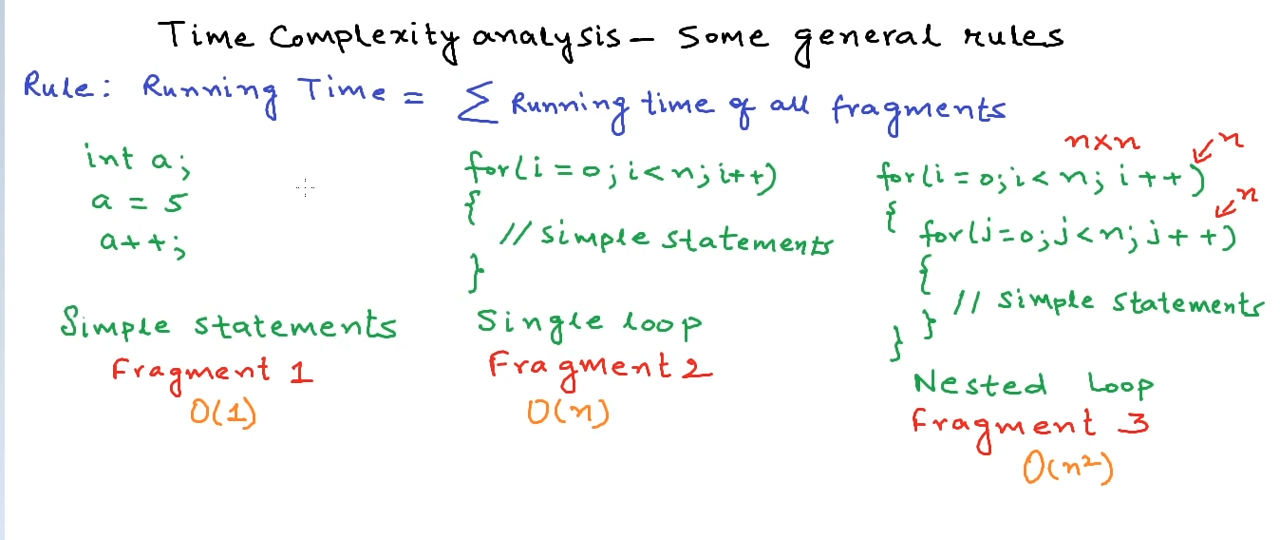 Time Complexity analysis – Some general rules
Rule: Running Time = ∑ Running time of all fragments
int a;
a = 5
a++;
Simple statements
Fragment 1
O(1)
for(i=0;i<n;i++)
{
// simple statements
}
Single loop
Fragment 2
O(n)
n×n
n
for(i=0;i<n; i++)
{
n
for(j=0;j<n; j++)
{
// simple statements
}
}
Nested Loop
Fragment 3
O(n²)